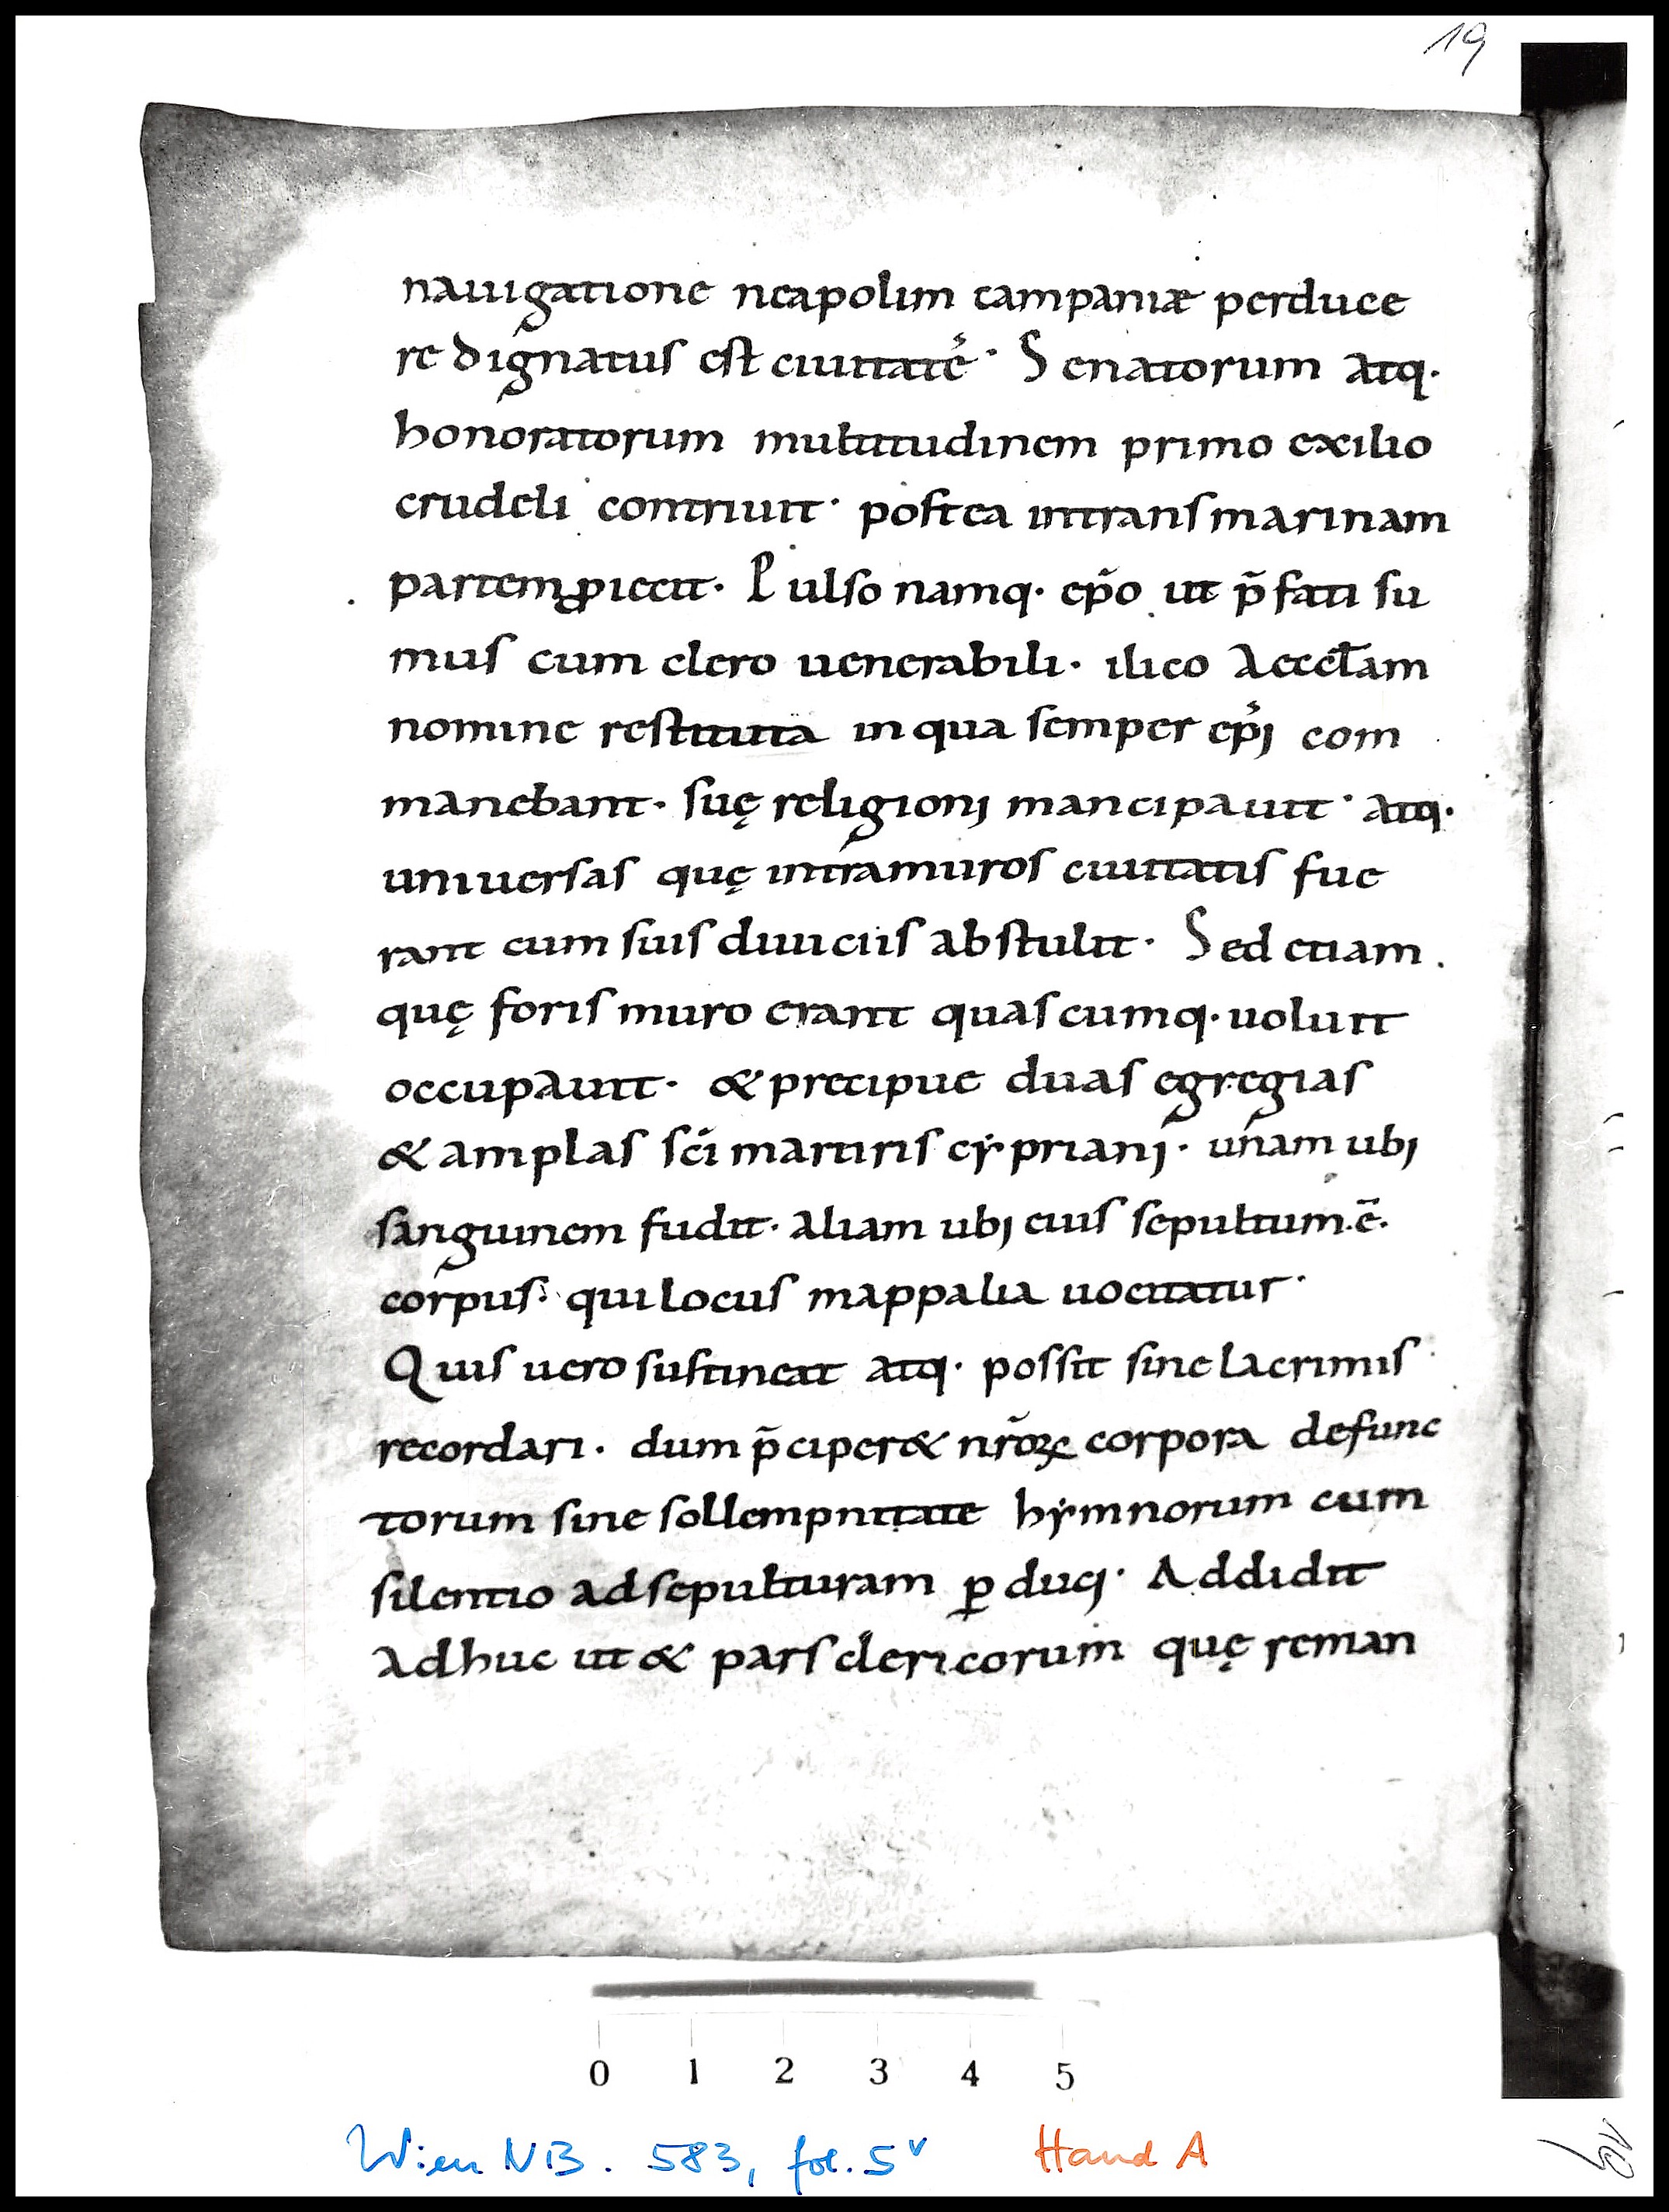 19
nauigatione neapolim campaniæ perduce
re dignatus est ciuitatē· Senatorum atq·
honoratorum multitudinem primo exilio
crudeli contriuit· postea intransmarinam
partem ꝓiecit· Pulso namq· ep̄o ut p̄fati su
mus cum clero uenerabili· ilico aeccl̄am
nomine restituta in qua semper ep̄i com
manebant· suę religionj mancipauit· atq·
uniuersas quę intramuros ciuitatis fue
rant cum suis diuiciis abstulit· Sed etiam
quę foris muro erant quascumq· uoluit
occupauit· & precipue duas egregias
& amplas sc̄i martiris cẏprianj· unam ubj
sanguinem fudit· aliam ubj eius sepultum·ē·
corpus· qui locus mappalia uocitatur·
Quis uero sustineat atq· possit sine lacrimis
recordari· dum p̄ciper& nr̄oꝝ corpora defunc
torum sine sollempnitate hẏmnorum cum
silentio ad sepulturam ꝑducj· Addidit
adhuc ut & pars clericorum quę reman
0 1 2 3 4 5
Wien NB. 583, fol. 5v Hand A